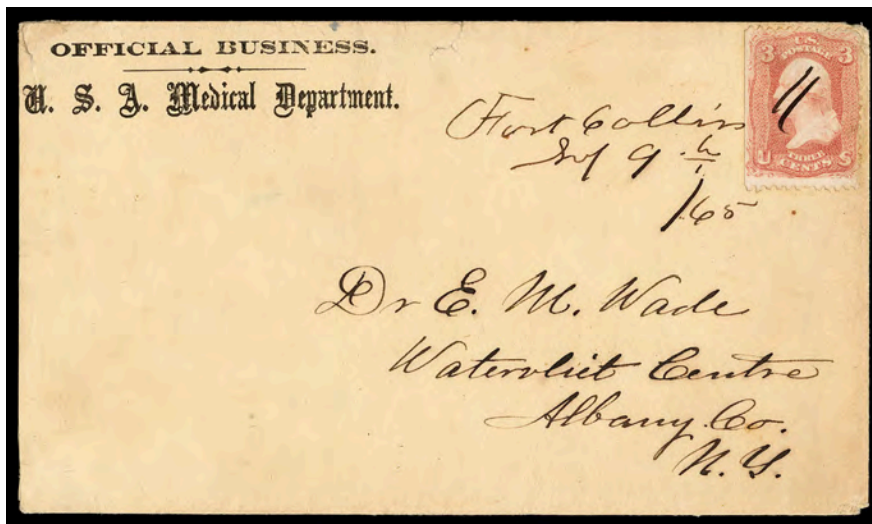 OFFICIAL BUSINESS.
U. S. A. Medical Department.
Fort Collins
9 th
/65
3 U.S. POSTAGE 3
U THREE CENTS S
Dr E. M. Wade
Watervliet Centre
Albany Co.
N. Y.